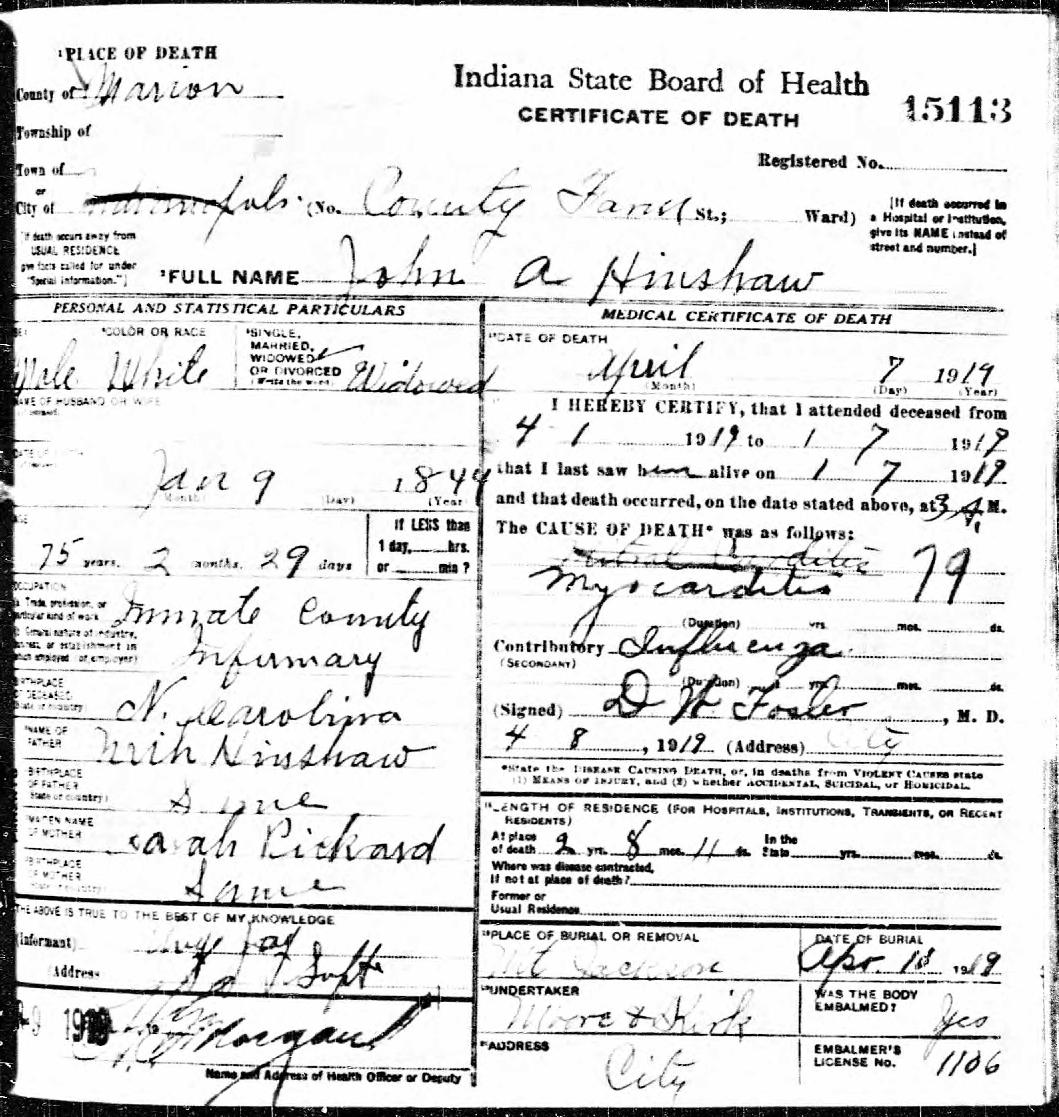 ¹PLACE OF DEATH
County of Marion
Indiana State Board of Health
CERTIFICATE OF DEATH
15113
Township of
Registered No.
Town of
or
City of Indianapols. (No. County Farm St.; Ward)
[If death occurred in a Hospital or Institution, give its NAME instead of street and number.]
[If death occurs away from USUAL RESIDENCE give facts called for under "Special Information."]
²FULL NAME John A Hinshaw
PERSONAL AND STATISTICAL PARTICULARS
COLOR OR RACE
Male White
SINGLE, MARRIED, WIDOWED OR DIVORCED (Write the word) Widowed
NAME OF HUSBAND OR WIFE
Jan 9 1844
(Month) (Day) (Year)
AGE
75 years. 2 months. 29 days
If LESS than
1 day, hrs.
or min?
OCCUPATION
Inmate County
Infirmary
BIRTHPLACE OF DECEASED
State or country)
N. Carolina
NAME OF FATHER
Hinshaw
BIRTHPLACE OF FATHER
State or country)
Same
MAIDEN NAME OF MOTHER
Sarah Pickard
BIRTHPLACE OF MOTHER
Same
THE ABOVE IS TRUE TO THE BEST OF MY KNOWLEDGE
(Informant)
(Address Supt
9 1919
Morgan
Name and Address of Health Officer or Deputy
MEDICAL CERTIFICATE OF DEATH
DATE OF DEATH
April 7 1919
(Month) (Day) (Year)
I HEREBY CERTIFY, that I attended deceased from
4 1 1919 to 1 7 1919
that I last saw him alive on 1 7 1919
and that death occurred, on the date stated above, at 3 A. M.
The CAUSE OF DEATH* was as follows:
Mitral Carditis
Myocarditis 79
(Duration) yrs. mos. ds.
Contributory Influenza
(SECONDARY)
(Duration) yrs. mos. ds.
(Signed) D W Foster, M. D.
4 8, 1919 (Address) City
*State the DISEASE CAUSING DEATH, or, in deaths from VIOLENT CAUSES state
(1) MEANS OF INJURY, and (2) whether ACCIDENTAL, SUICIDAL, or HOMICIDAL.
LENGTH OF RESIDENCE (FOR HOSPITALS, INSTITUTIONS, TRANSIENTS, OR RECENT
RESIDENTS)
At place of death 2 yrs. 8 mos. 11 ds. In the State yrs. mos. ds.
Where was disease contracted,
If not at place of death?
Former or
Usual Residence
PLACE OF BURIAL OR REMOVAL
Mt Jackson
DATE OF BURIAL
Apr. 10 1919
UNDERTAKER
Moore & Kirk
WAS THE BODY
EMBALMED? Yes
ADDRESS
City
EMBALMER'S
LICENSE No. 1106